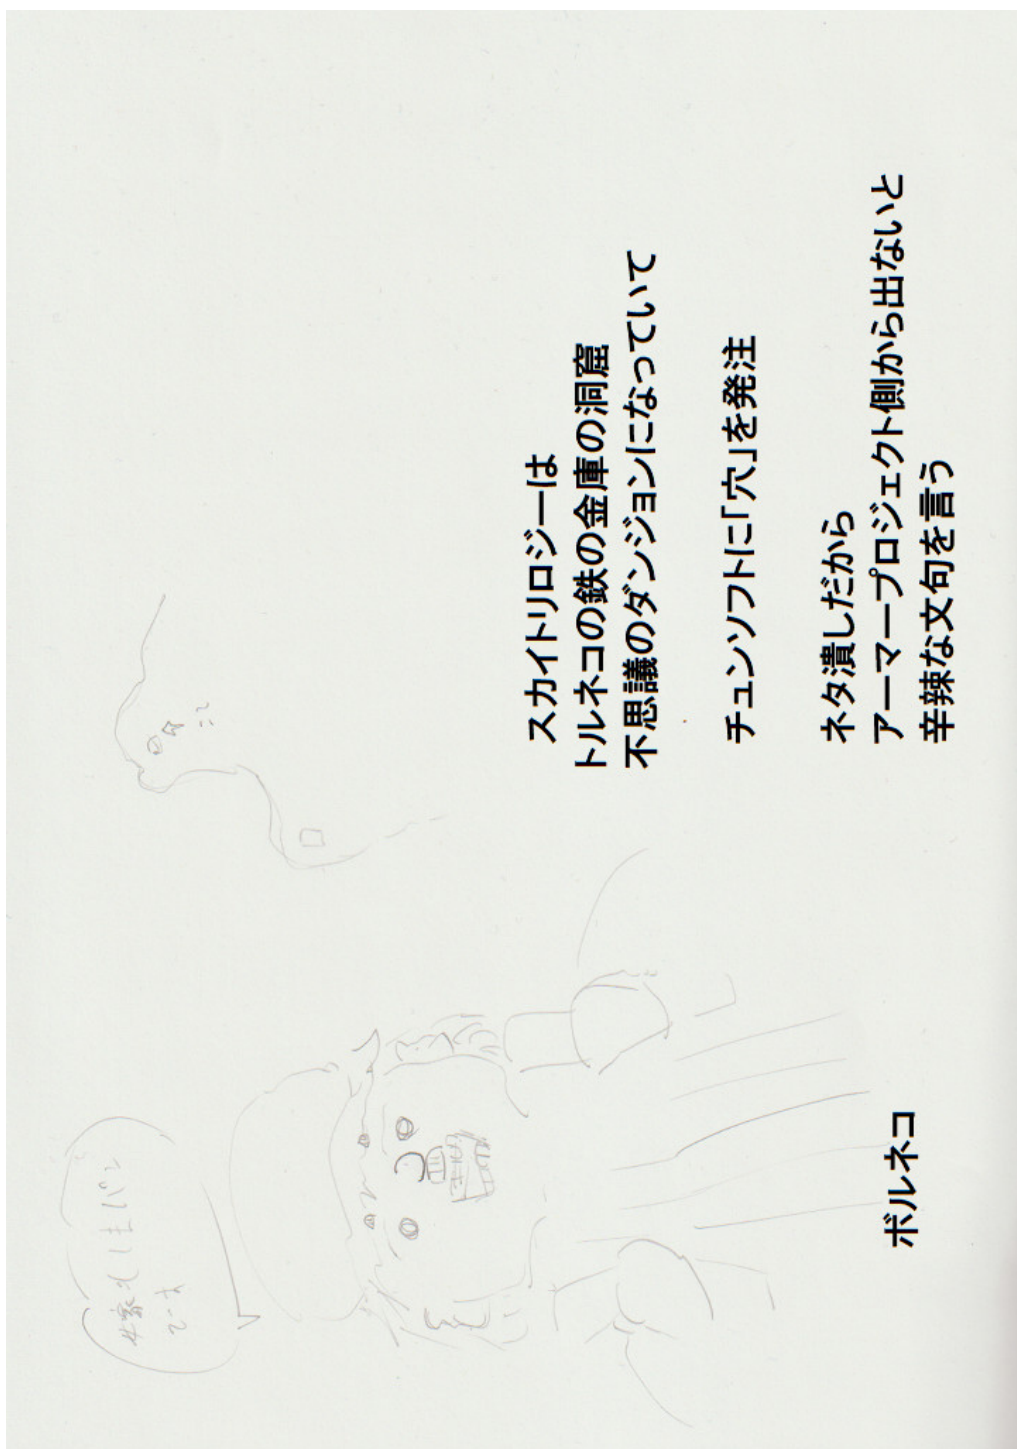 スカイトリロジーは
トルネコの鉄の金庫の洞窟
不思議のダンジョンになっていて
チュンソフトに「穴」を発注
ネタ潰しだから
アーマープロジェクト側から出ないと
辛辣な文句を言う
ボルネコ
です